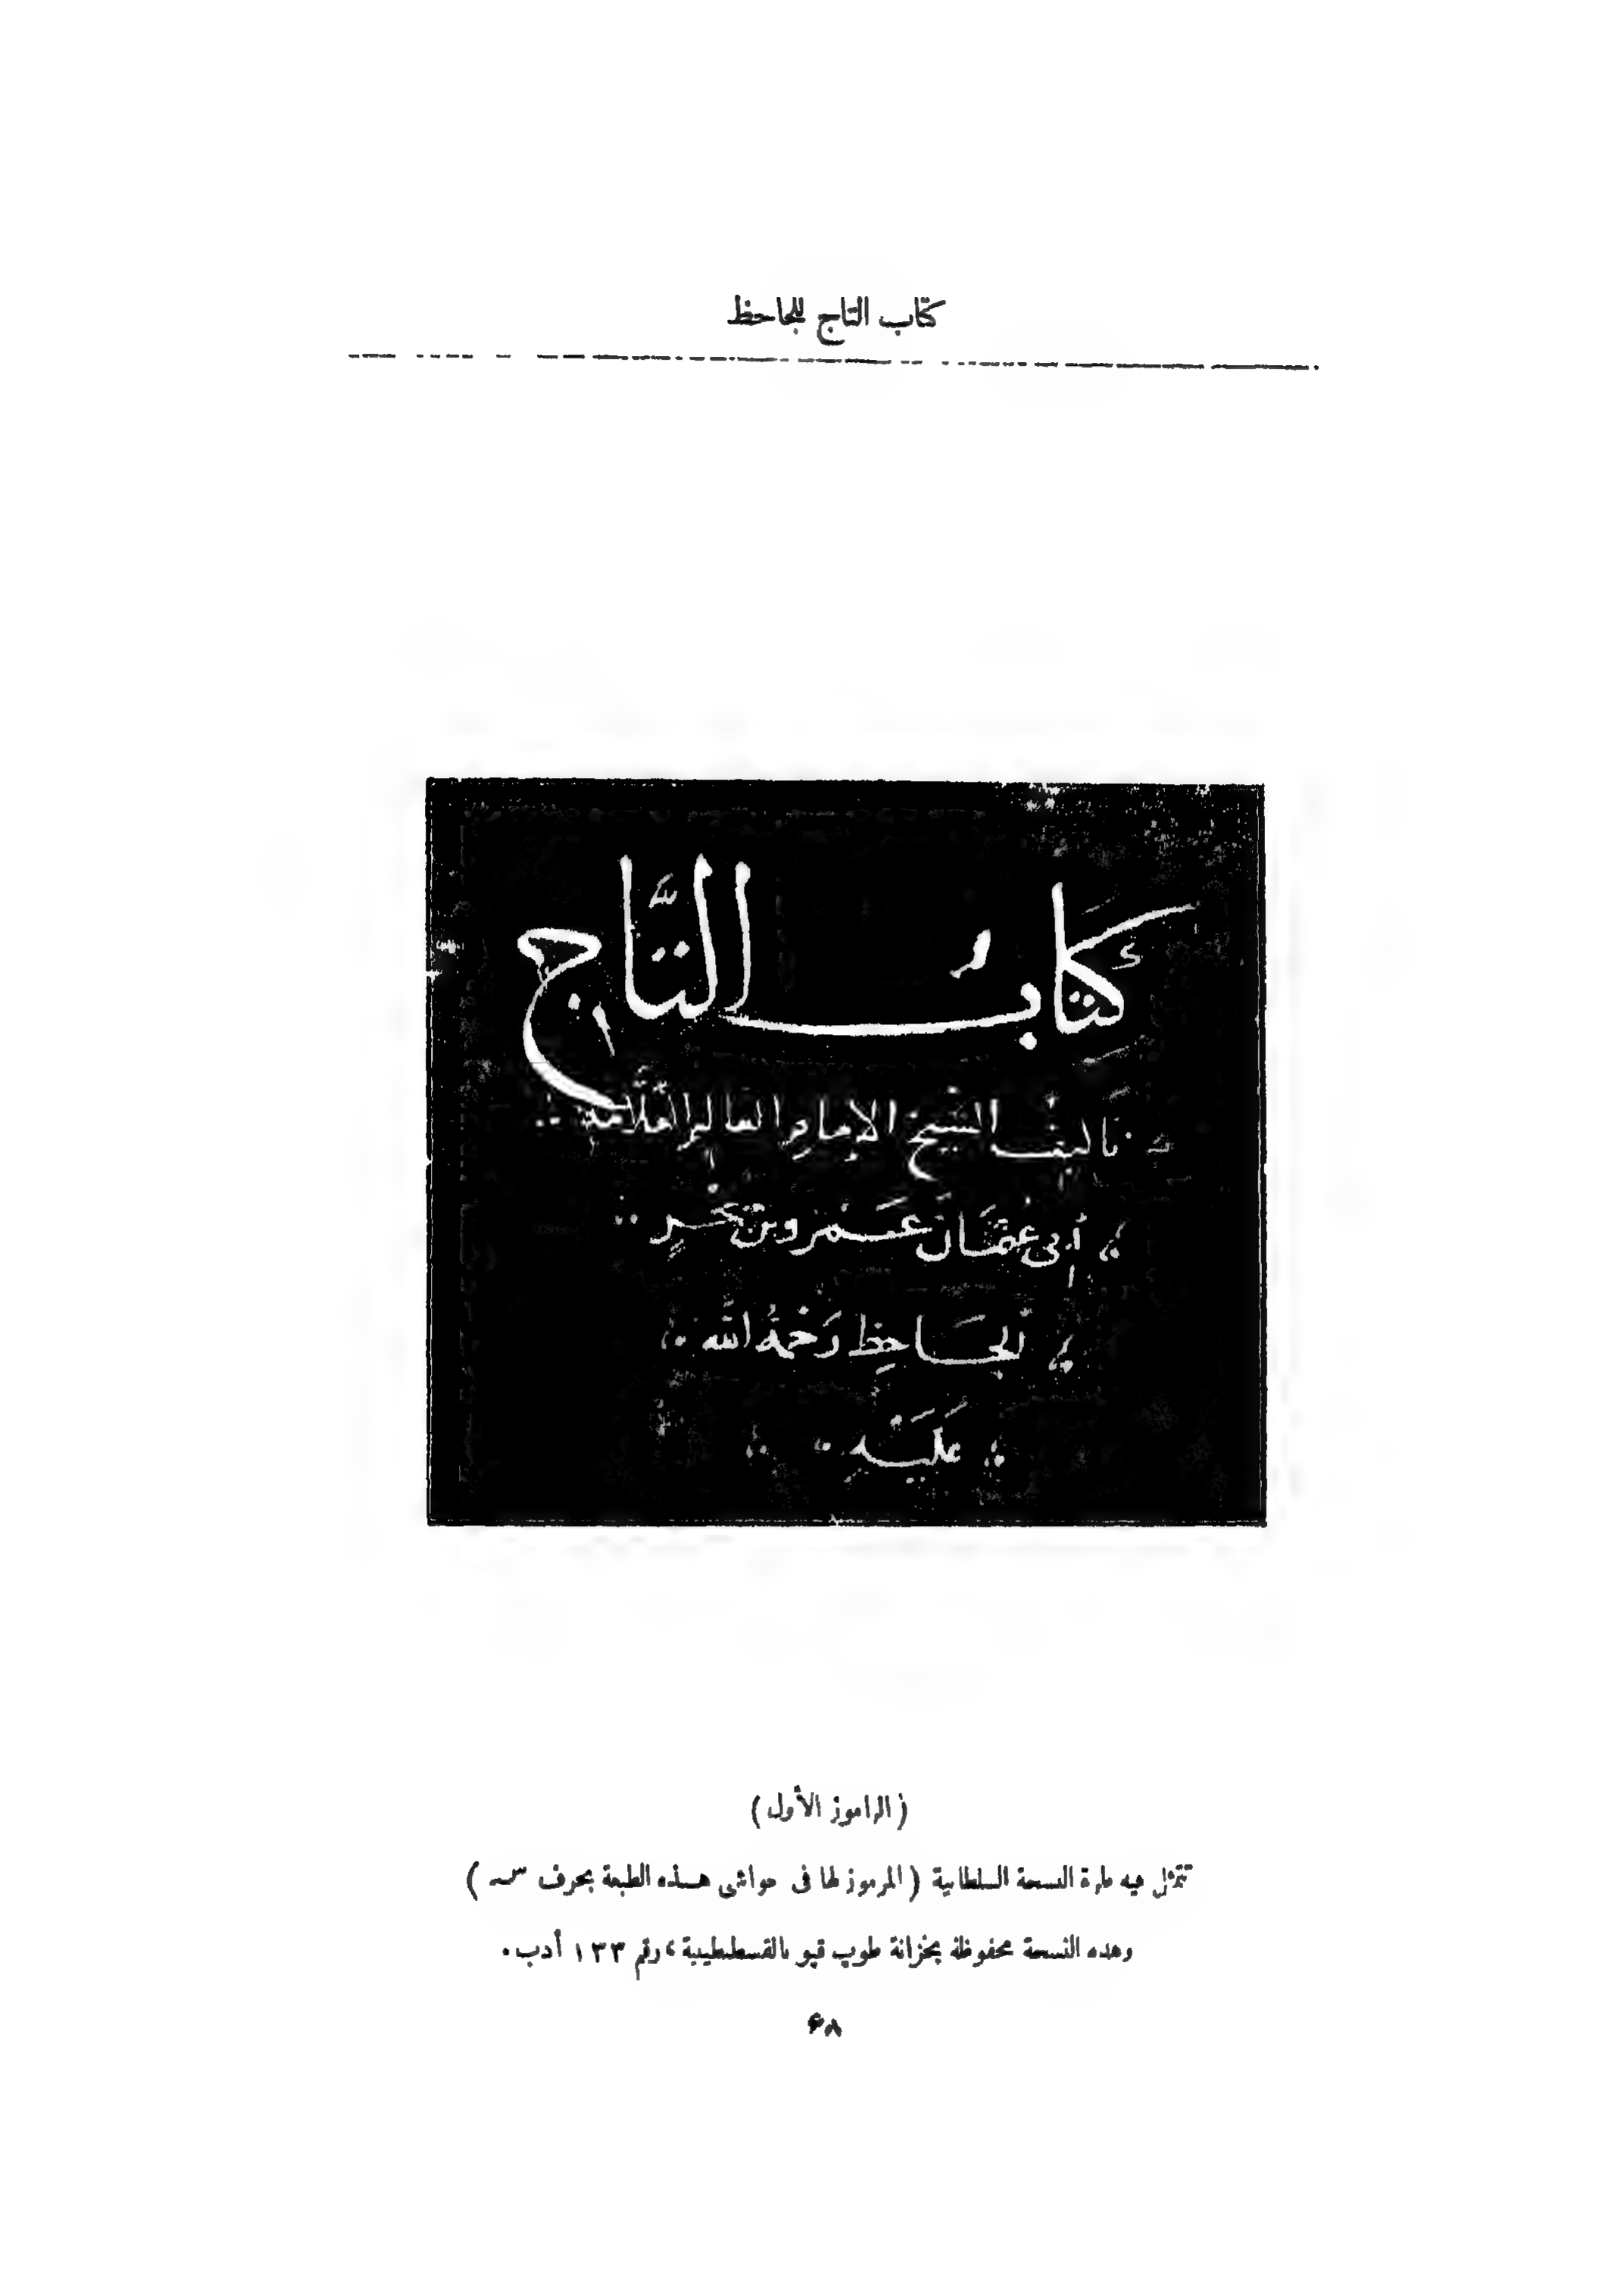 كتاب التاج للجاحظ
كِتَابُ التَّاجِ
تأليف الشيخ الإمام العالم العلّامة
أبي عثمان عمرو بن بحر
الجاحظ رحمة الله
عليه
(الراموز الأول)
تتمثل فيه طرة النسخة السلطانية (المرموز لها فى حواشى هـذه الطبعة بحرف سـ)
وهذه النسخة محفوظة بخزانة طوپ قپو بالقسطنطينية، رقم ١٣٣ أدب.
۶٨